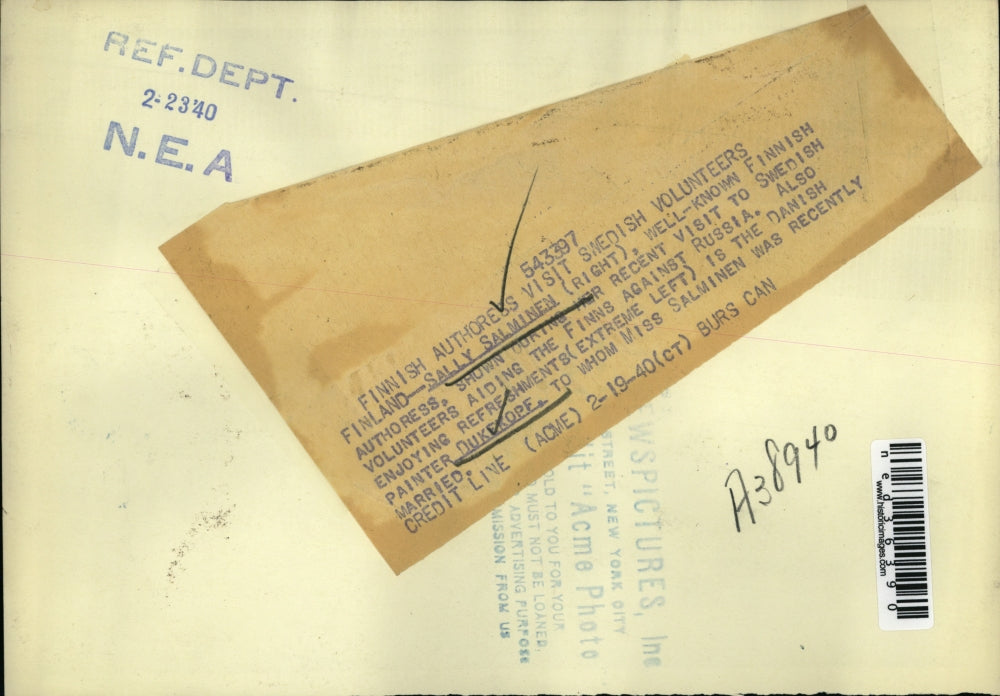 REF. DEPT.
2-23'40
N. E. A
543397
FINNISH AUTHORESS VISIT SWEDISH VOLUNTEERS
FINLAND--SALLY SALMINEN (RIGHT), WELL-KNOWN FINNISH
AUTHORESS, SHOWN DURING HER RECENT VISIT TO SWEDISH
VOLUNTEERS AIDING THE FINNS AGAINST RUSSIA. ALSO
ENJOYING REFRESHMENTS(EXTREME LEFT) IS THE DANISH
PAINTER DUKEKOPF, TO WHOM MISS SALMINEN WAS RECENTLY
MARRIED.
CREDIT LINE (ACME) 2-19-40(CT) BURS CAN
EWSPICTURES, Inc
STREET, NEW YORK CITY
it "Acme Photo
OLD TO YOU FOR YOUR
MUST NOT BE LOANED,
ADVERTISING PURPOSE
MISSION FROM US
A38940
ned36390
www.historicimages.com